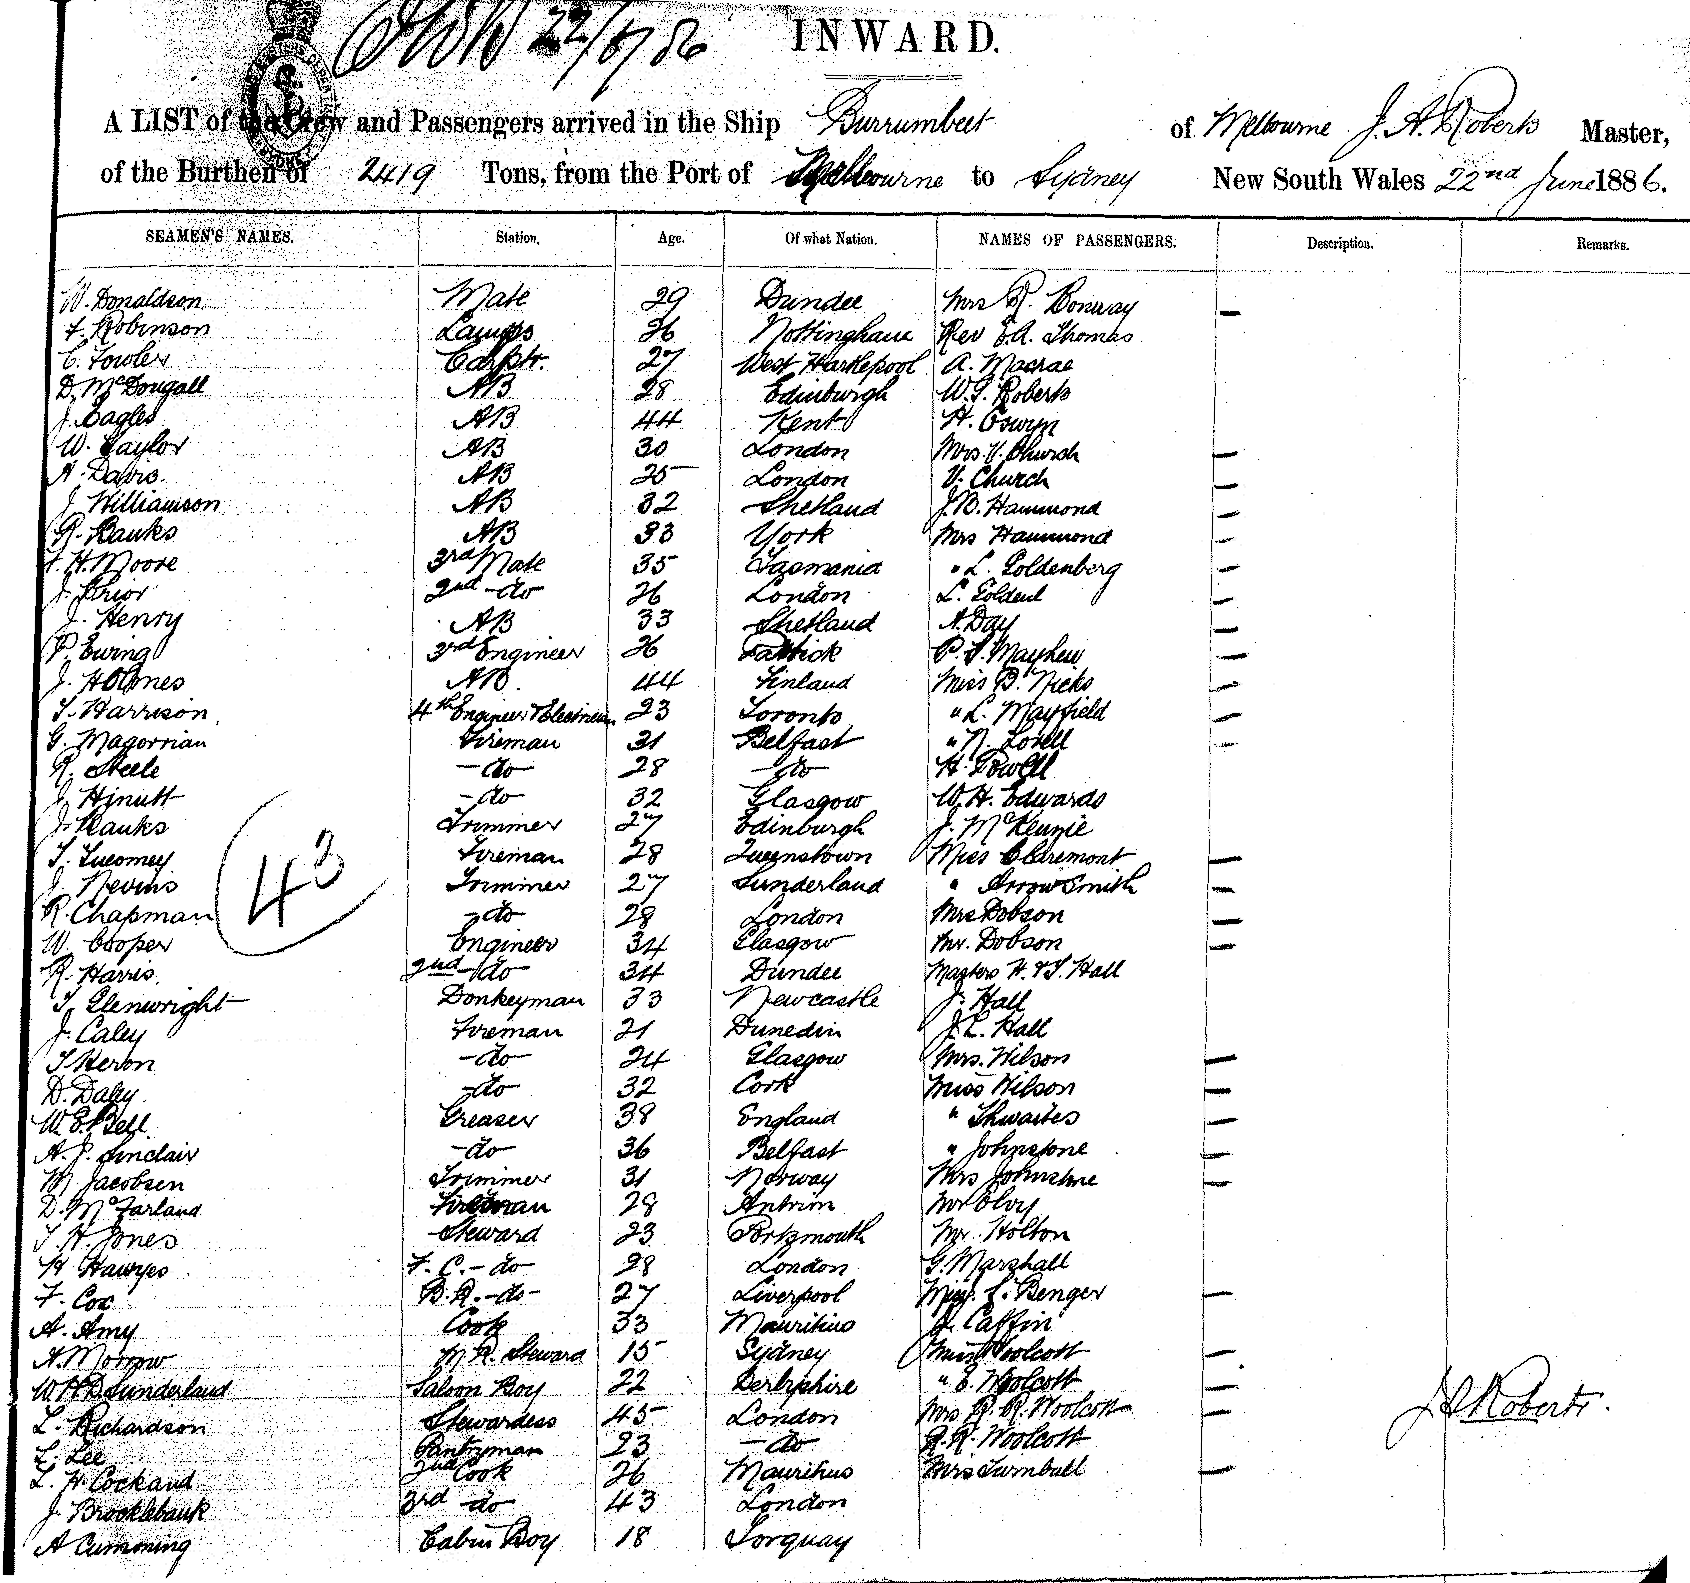 22/6/86 INWARD.
A LIST of the Crew and Passengers arrived in the Ship Burrumbeet of Melbourne J. A. Roberts Master,
of the Burthen of 2419 Tons, from the Port of Melbourne to Sydney New South Wales 22nd June 1886.
SEAMEN'S NAMES. Station. Age. Of what Nation. NAMES OF PASSENGERS. Description. Remarks.
W. Donaldson Mate 29 Dundee Mrs R. Conway —
F. Robinson Lamps 26 Nottingham Rev E.A. Thomas
C. Fowler Carptr. 27 West Hartlepool A. Macrae
D. McDougall AB 28 Edinburgh W.G. Roberts
J. Eagles AB 44 Kent H. Oswyn
W. Taylor AB 30 London Mrs V. Church —
A. Davis AB 25 London V. Church —
J. Williamson AB 32 Shetland J.B. Hammond —
R. Banks AB 33 York Mrs Hammond —
F. H. Moore 3rd Mate 35 Tasmania " L. Goldenberg —
J. Prior 2nd - do 26 London L. —
J. Henry AB 33 Shetland A. Day —
P. Ewing 3rd Engineer 26 Partick P. S. Mayhew —
J. Holmes AB 44 Finland Miss B. Nicks —
T. Harrison 4th Engineer & Electrician 23 Toronto " L. Mayfield —
G. Magorrian Fireman 31 Belfast " N. Lovell —
R. Steele - do 28 - do H. Powell
J. - do 32 Glasgow W.H. Edwards
J. Banks Trimmer 27 Edinburgh J. McKenzie
T. Twomey Fireman 28 Queenstown Miss Claremont —
J. Nevins Trimmer 27 Sunderland " Arrowsmith —
43
R. Chapman - do 28 London Mrs Dobson —
W. Cooper Engineer 34 Glasgow Mr. Dobson —
R. Harris 2nd - do 34 Dundee Masters H. & T. Hall
T. Glenwright Donkeyman 33 Newcastle J. Hall
J. Caley Fireman 21 Dunedin J.L. Hall
T Heron - do 24 Glasgow Mrs. Wilson —
D. Daley - do 32 Cork Miss Wilson —
W.E. Bell Greaser 38 England " Thwaites —
A. J. Sinclair - do 36 Belfast " Johnstone —
M. Jacobsen Trimmer 31 Norway Mrs Johnstone —
D. McFarland Fireman 28 Antrim Mr
T. H. Jones Steward 23 Portsmouth Mr. Holton
H Hawyes F. C. - do 28 London G. Marshall
F. Cox B.R. - do - 27 Liverpool Miss L. Benger —
A. Amy Cook 33 Mauritius J. Caffin
A. Morrow M.R. Steward 15 Sydney Miss Woolcott —
W H D Sunderland Saloon Boy 22 Derbyshire " E. Woolcott —
L. Richardson Stewardess 45 London Mrs R. R. Woolcott —
J. A. Roberts.
L. Lee Pantryman 23 - do R. R. Woolcott
L. H Cockand 2nd Cook 26 Mauritius Mrs Turnbull —
J. Brooklebank 3rd - do 43 London
A Cumming Cabin Boy 18 Torquay